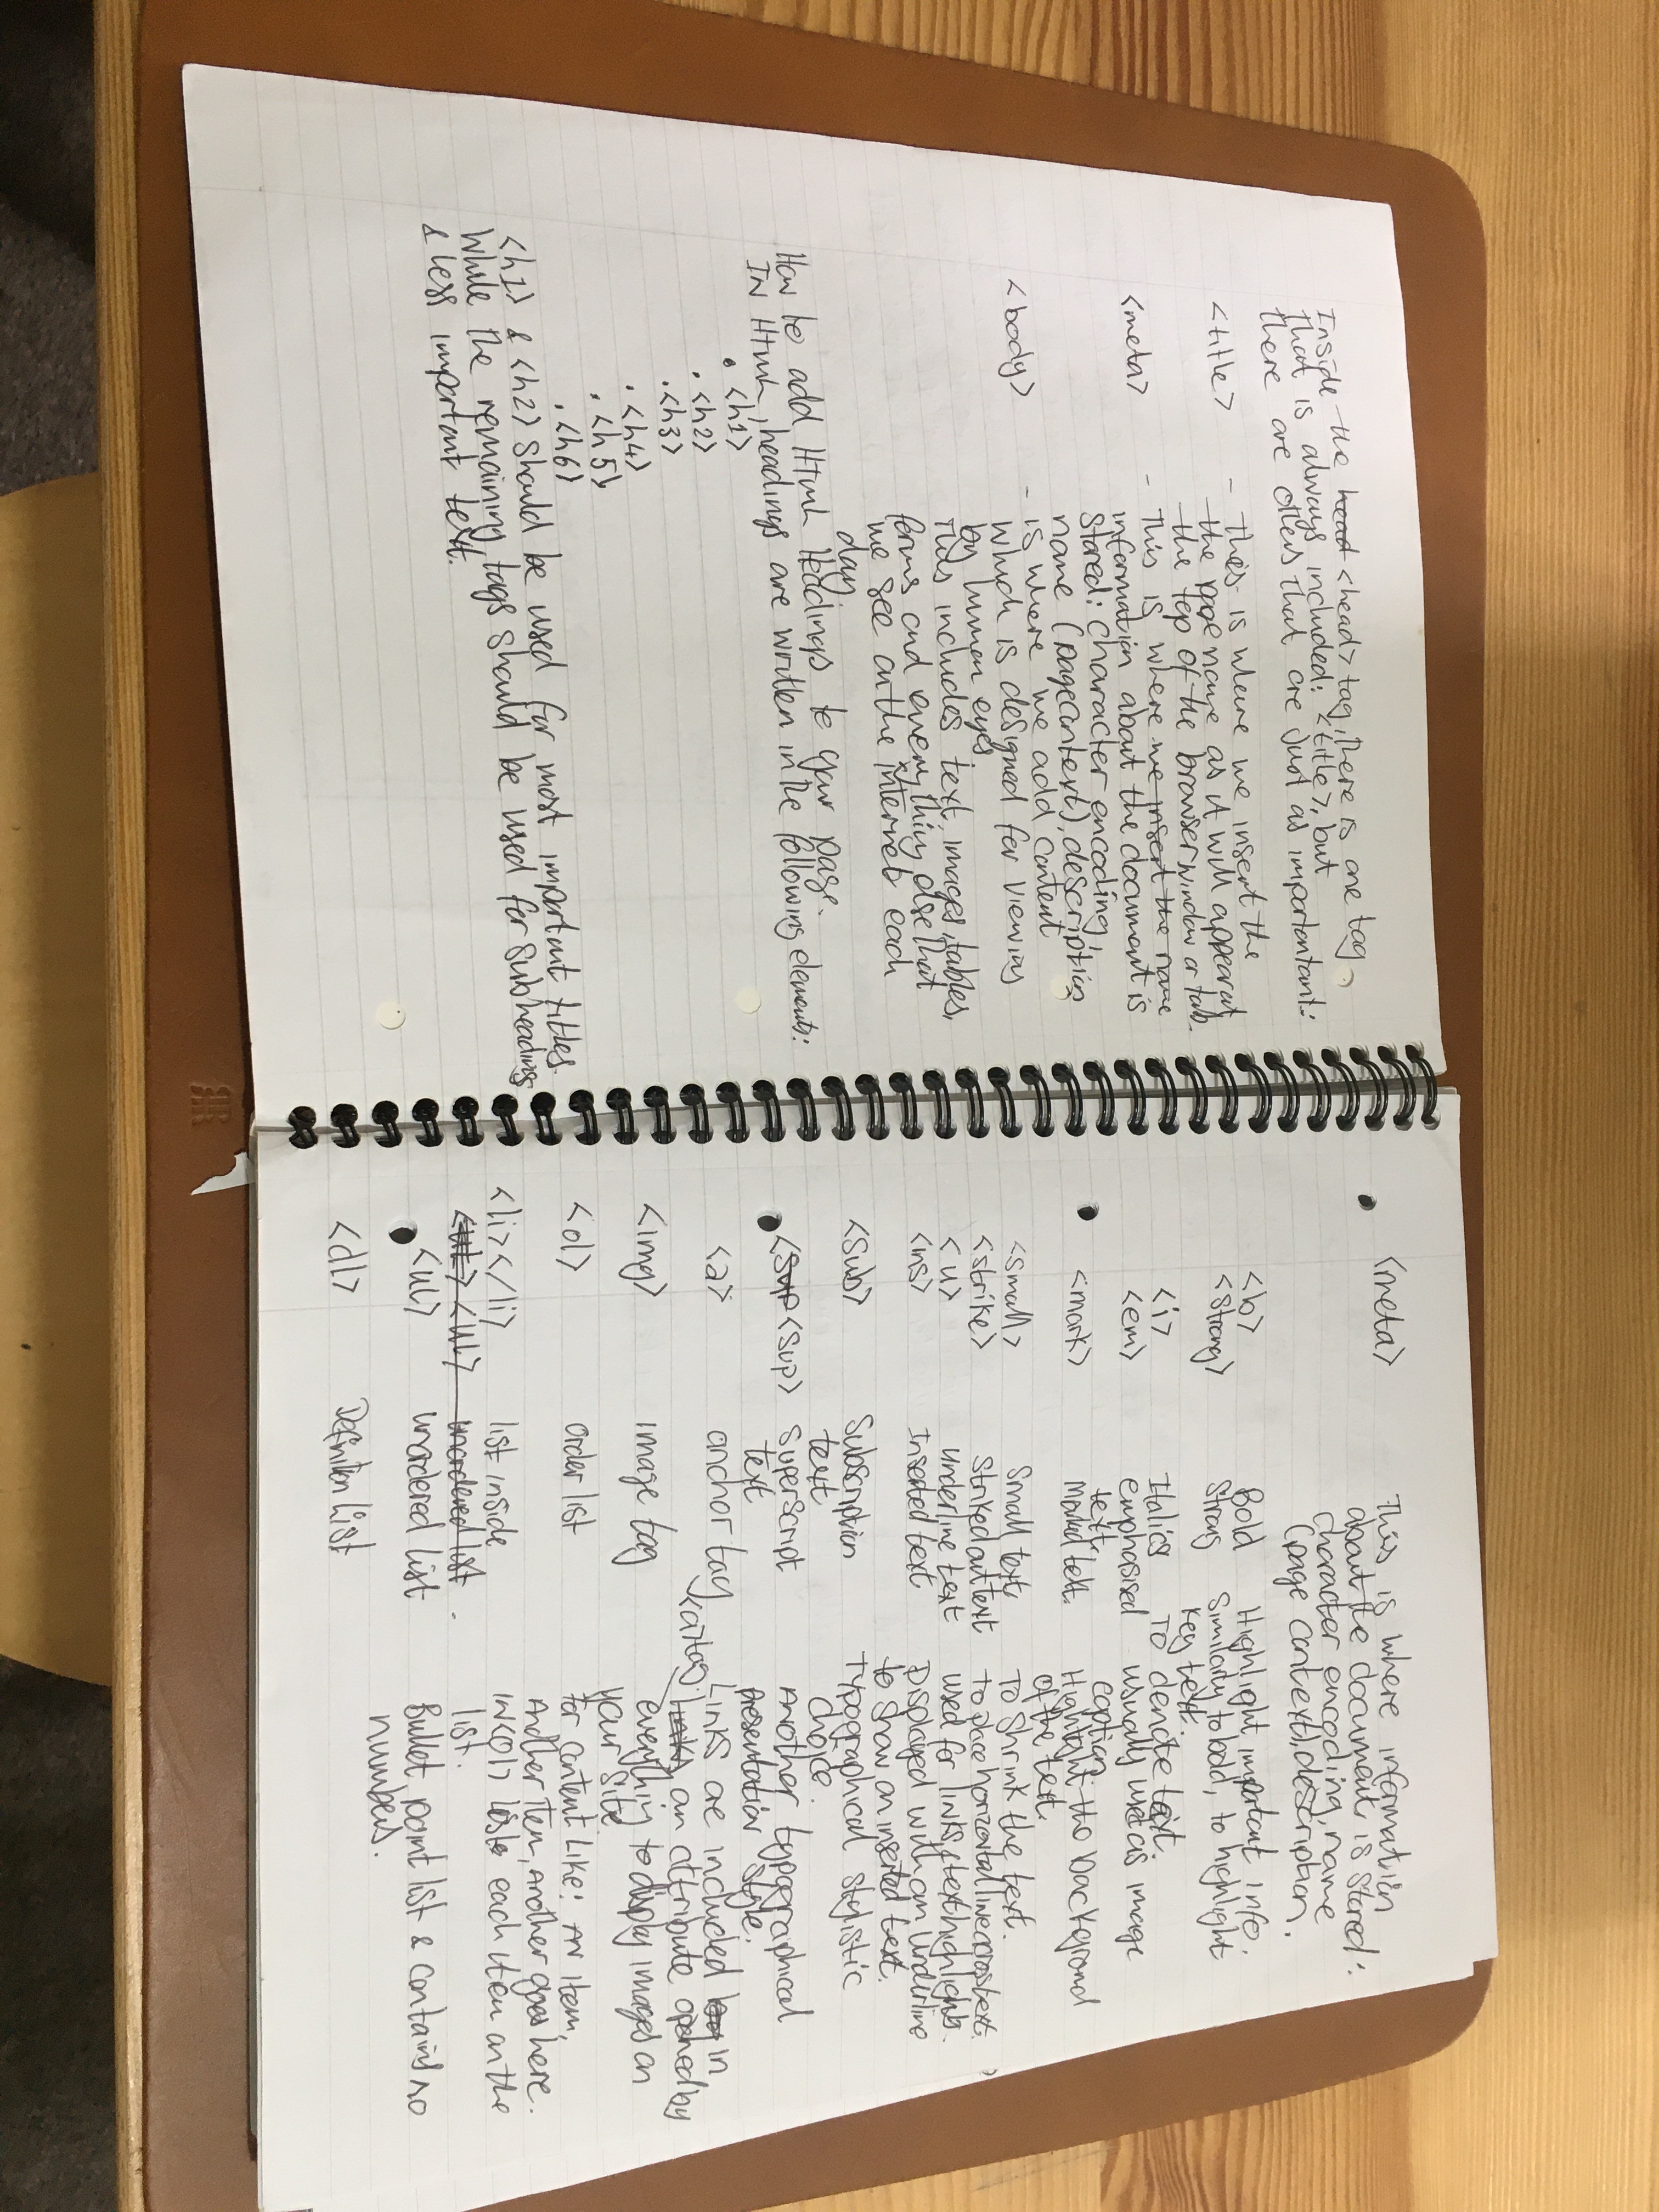 Inside the head <head> tag, there is one tag
that is always included: <title>, but
there are others that are just as importantant:
<title> - This is where we insert the
the page name as it will appear at
the top of the browser window or tab.
<meta> - This is where we insert the name
information about the document is
stored: character encoding,
name (page context), description
<body> - is where we add content
which is designed for viewing
by human eyes.
This includes text, images, tables,
forms and everything else that
we see on the internet each
day.
How to add HTML Headings to your page.
IN HTML, headings are written in the following elements:
• <h1>
• <h2>
• <h3>
• <h4>
• <h5>
• <h6>
<h1> & <h2> should be used for most important titles.
While the remaining tags should be used for subheadings
& less important text.
<meta> This is where information
about the document is stored:
character encoding, name
(page context), description.
<b> Bold Highlight important info.
<strong> Strong Similarly to bold, to highlight
key text.
<i> Italics To denote text.
<em> emphasised usually used as image
text. caption.
<mark> Marked text. Highlight the background
of the text.
<small> Small text To shrink the text.
<strike> Striked out text To place horizontal line across text.
<u> underline text used for links & text highlights.
<ins> Inserted text Displayed with an underline
to show an inserted text.
<sub> Subscription Typographical stylistic
text choice.
<sup <sup> SuperScript Another typographical
text presentation style.
<a> anchor tag Links are included by in
<a> tag. links, an attribute opened by
<img> image tag everything to display images on
your site.
<ol> order list For content like: An item,
Another item, Another goes here.
<li></li> list inside IN <ol> lists each item on the
<ul> <ul> unordered list . list.
<ul> unordered list Bullet point list & contains no
numbers.
<dl> Definition List